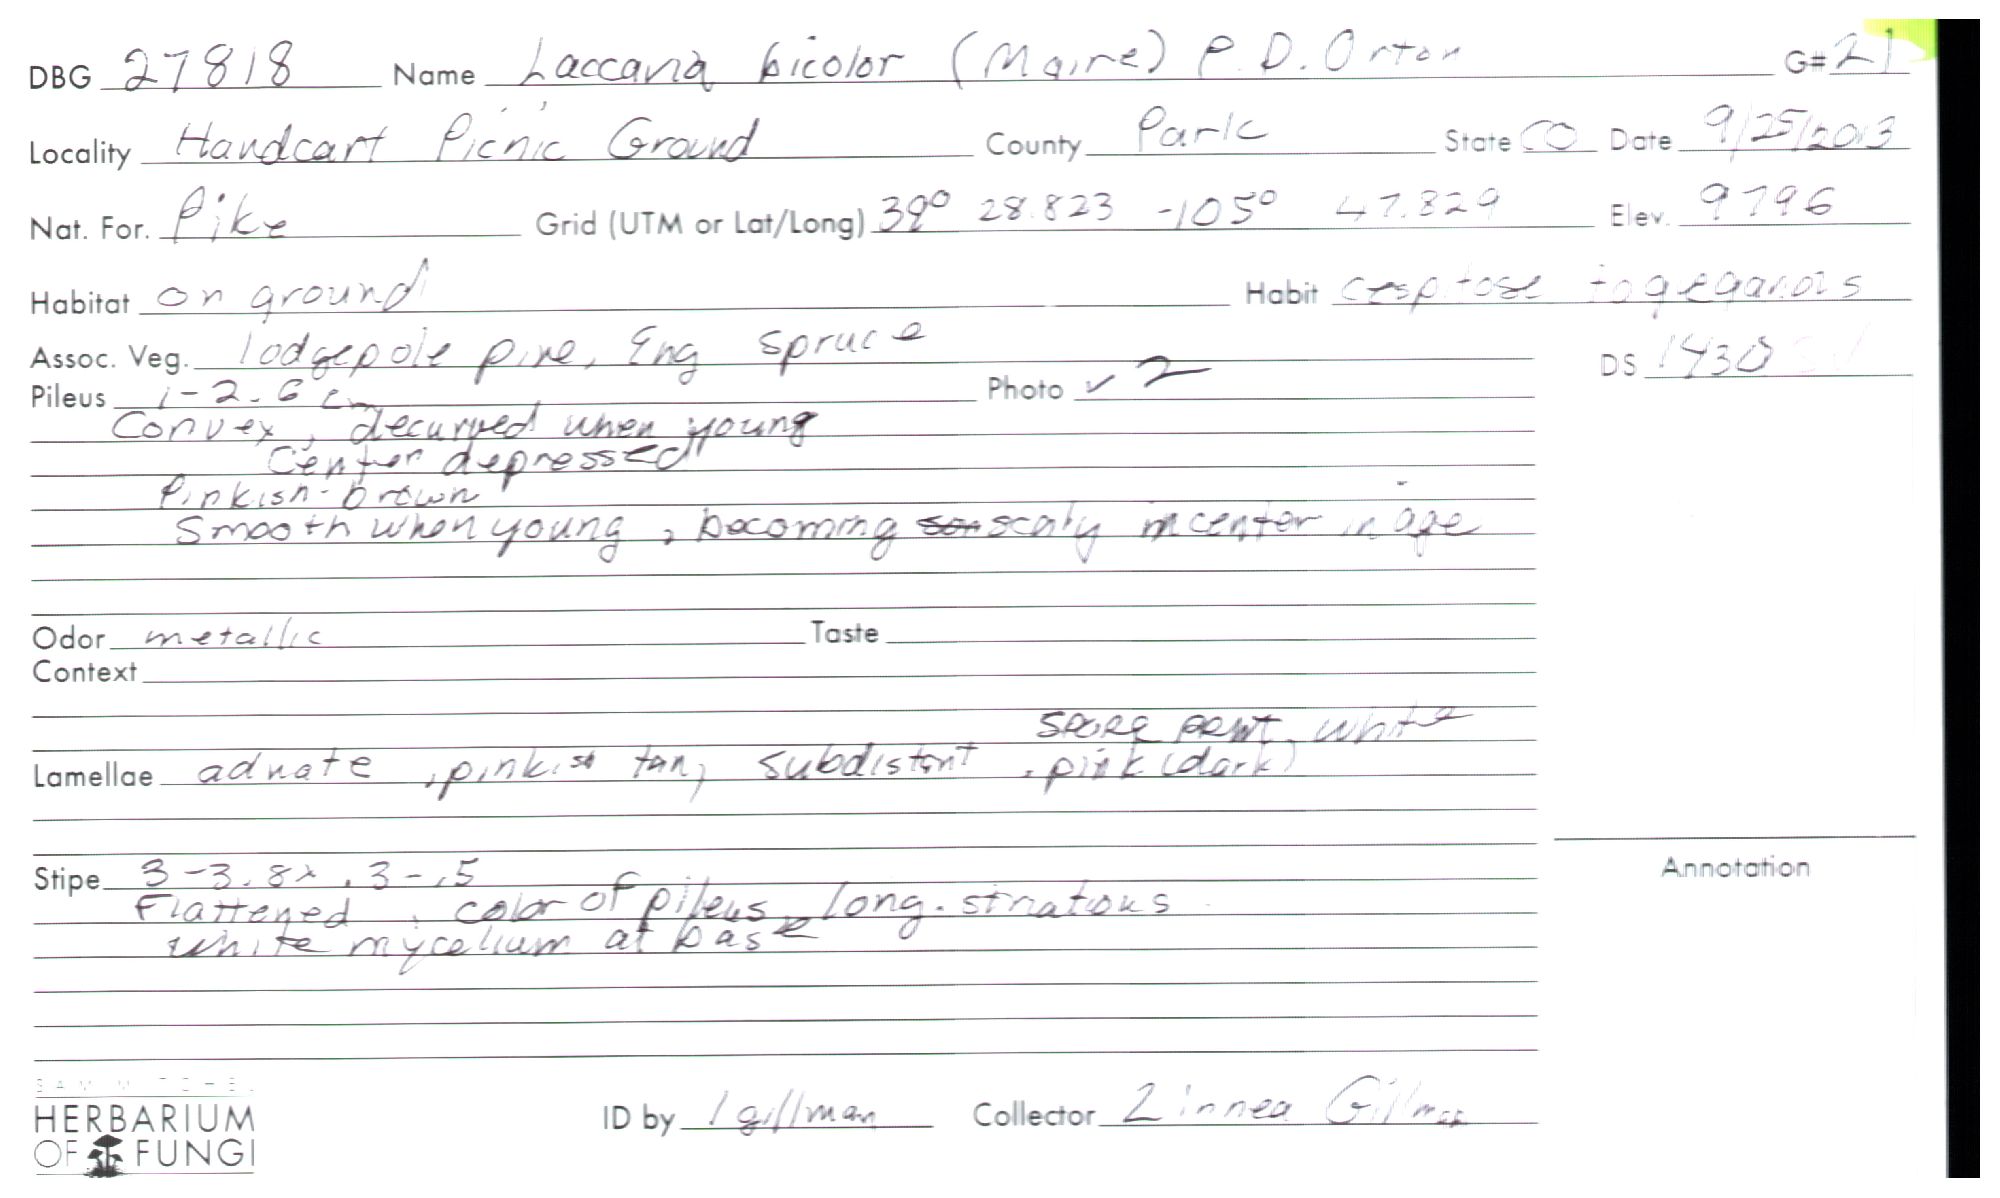 DBG 27818 Name Laccaria bicolor (Maire) P.D. Orton G# 21
Locality Handcart Picnic Ground County Park State CO Date 9/25/2013
Nat. For. Pike Grid (UTM or Lat/Long) 39° 28.823 -105° 47.829 Elev. 9796
Habitat on ground Habit cespitose to gregarious
Assoc. Veg. lodgepole pine, Eng spruce DS 1430
Pileus 1-2.6 cm Photo ✓ 2
Convex, decurved when young
Center depressed
Pinkish-brown
Smooth when young, becoming scaly in center in age
Odor metallic Taste
Context
spore print, white
Lamellae adnate, pinkish tan, subdistant, pink (dark)
Stipe 3-3.8x .3-.5
Flattened, color of pileus, long. striations
white mycelium at base
Annotation
SAM MITCHEL
HERBARIUM
OF FUNGI
ID by l gillman Collector Linnea Gillman